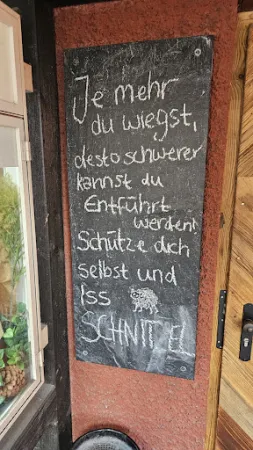 Je mehr
du wiegst,
desto schwerer
kannst du
Entführt
werden!
Schütze dich
selbst und
Iss
SCHNITTEL